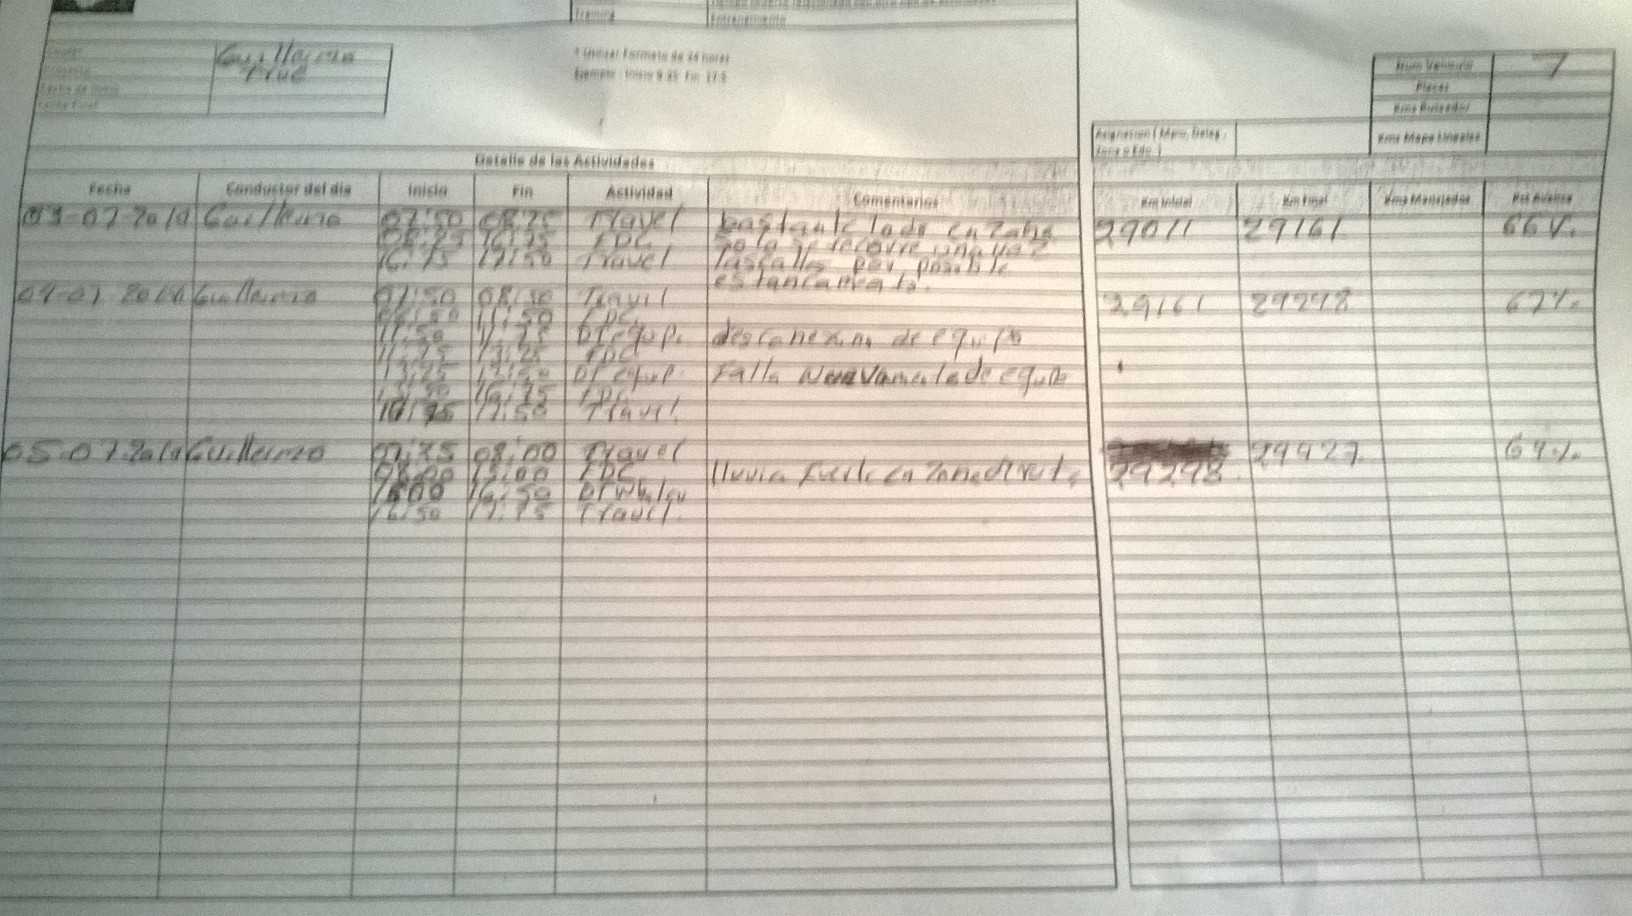 Training Entrenamiento
Guillermo
True
* Utilizar Formato de 24 horas
Ejemplo : Inicio 9.35 Fin 17.5
Num Vehiculo 7
Placas
Kms Ruteador
Kms Mapa Lineales
Asignacion ( Mpio, Deleg,
Zona o Edo. )
Detalle de las Actividades
Fecha Conductor del dia Inicio Fin Actividad Comentarios Km Inicial Km Final Kms Manejados Pct Avance
03-07-2014 Guillermo 07:50 08:25 Travel bastante lodo en zona 29011 29161 66%.
08:25 16:75 FDC solo se recorre una vez
16:75 17:50 Travel las calles por posible
estancamiento.
04-07-2014 Guillermo 07:50 08:50 Travel 29161 29298 67%.
08:50 11:50 FDC
11:50 11:75 DT equip. desconexion de equipo
11:75 13:25 FDC
13:25 13:50 DT equip. Falla Nuevamente de equipo
13:50 16:75 FDC
16:75 17:50 Travel.
05-07-2014 Guillermo 07:75 08:00 Travel 29427 69%.
08:00 15:00 FDC lluvia fuerte en zona 29298
15:00 16:50
16:50 17:75 Travel.